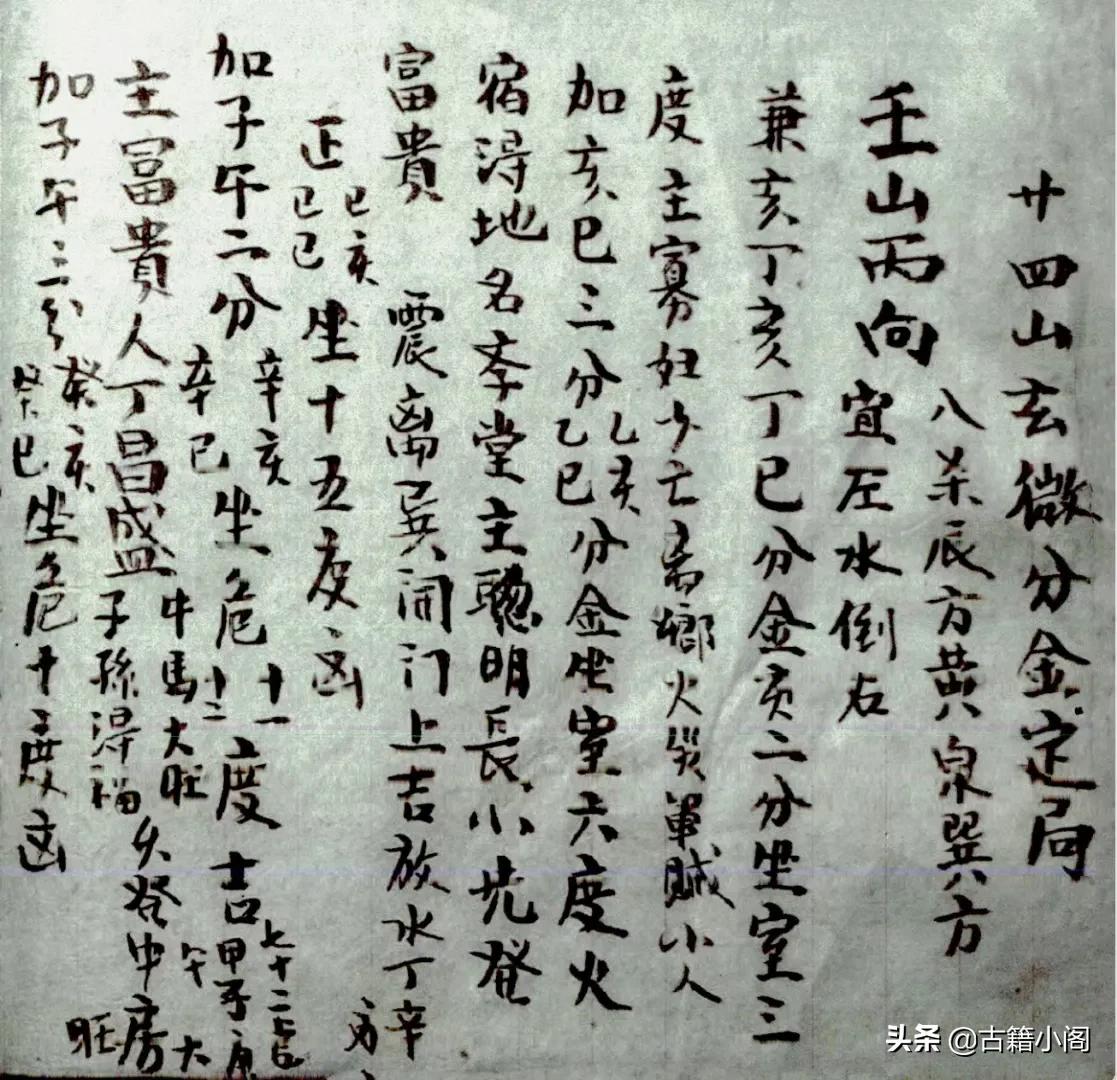 廿四山玄微分金定局
壬山丙向 八杀辰方黄泉巽方
宜左水倒右
兼亥丁亥丁巳分金亥二分坐室三
度主寡妇少亡离鄉火災軍賊小人
加亥巳三分乙亥乙巳分金坐室六度火
宿淂地名李堂主聰明長小先發
富貴 震离巽開门上吉放水丁辛方
正己亥己巳坐十五度凶
加子午二分辛亥辛巳坐危十一十二度吉
主冨貴人丁昌盛牛馬大旺子孫淂福
加子午三分癸亥癸巳坐危十度凶
头條 @古籍小阁